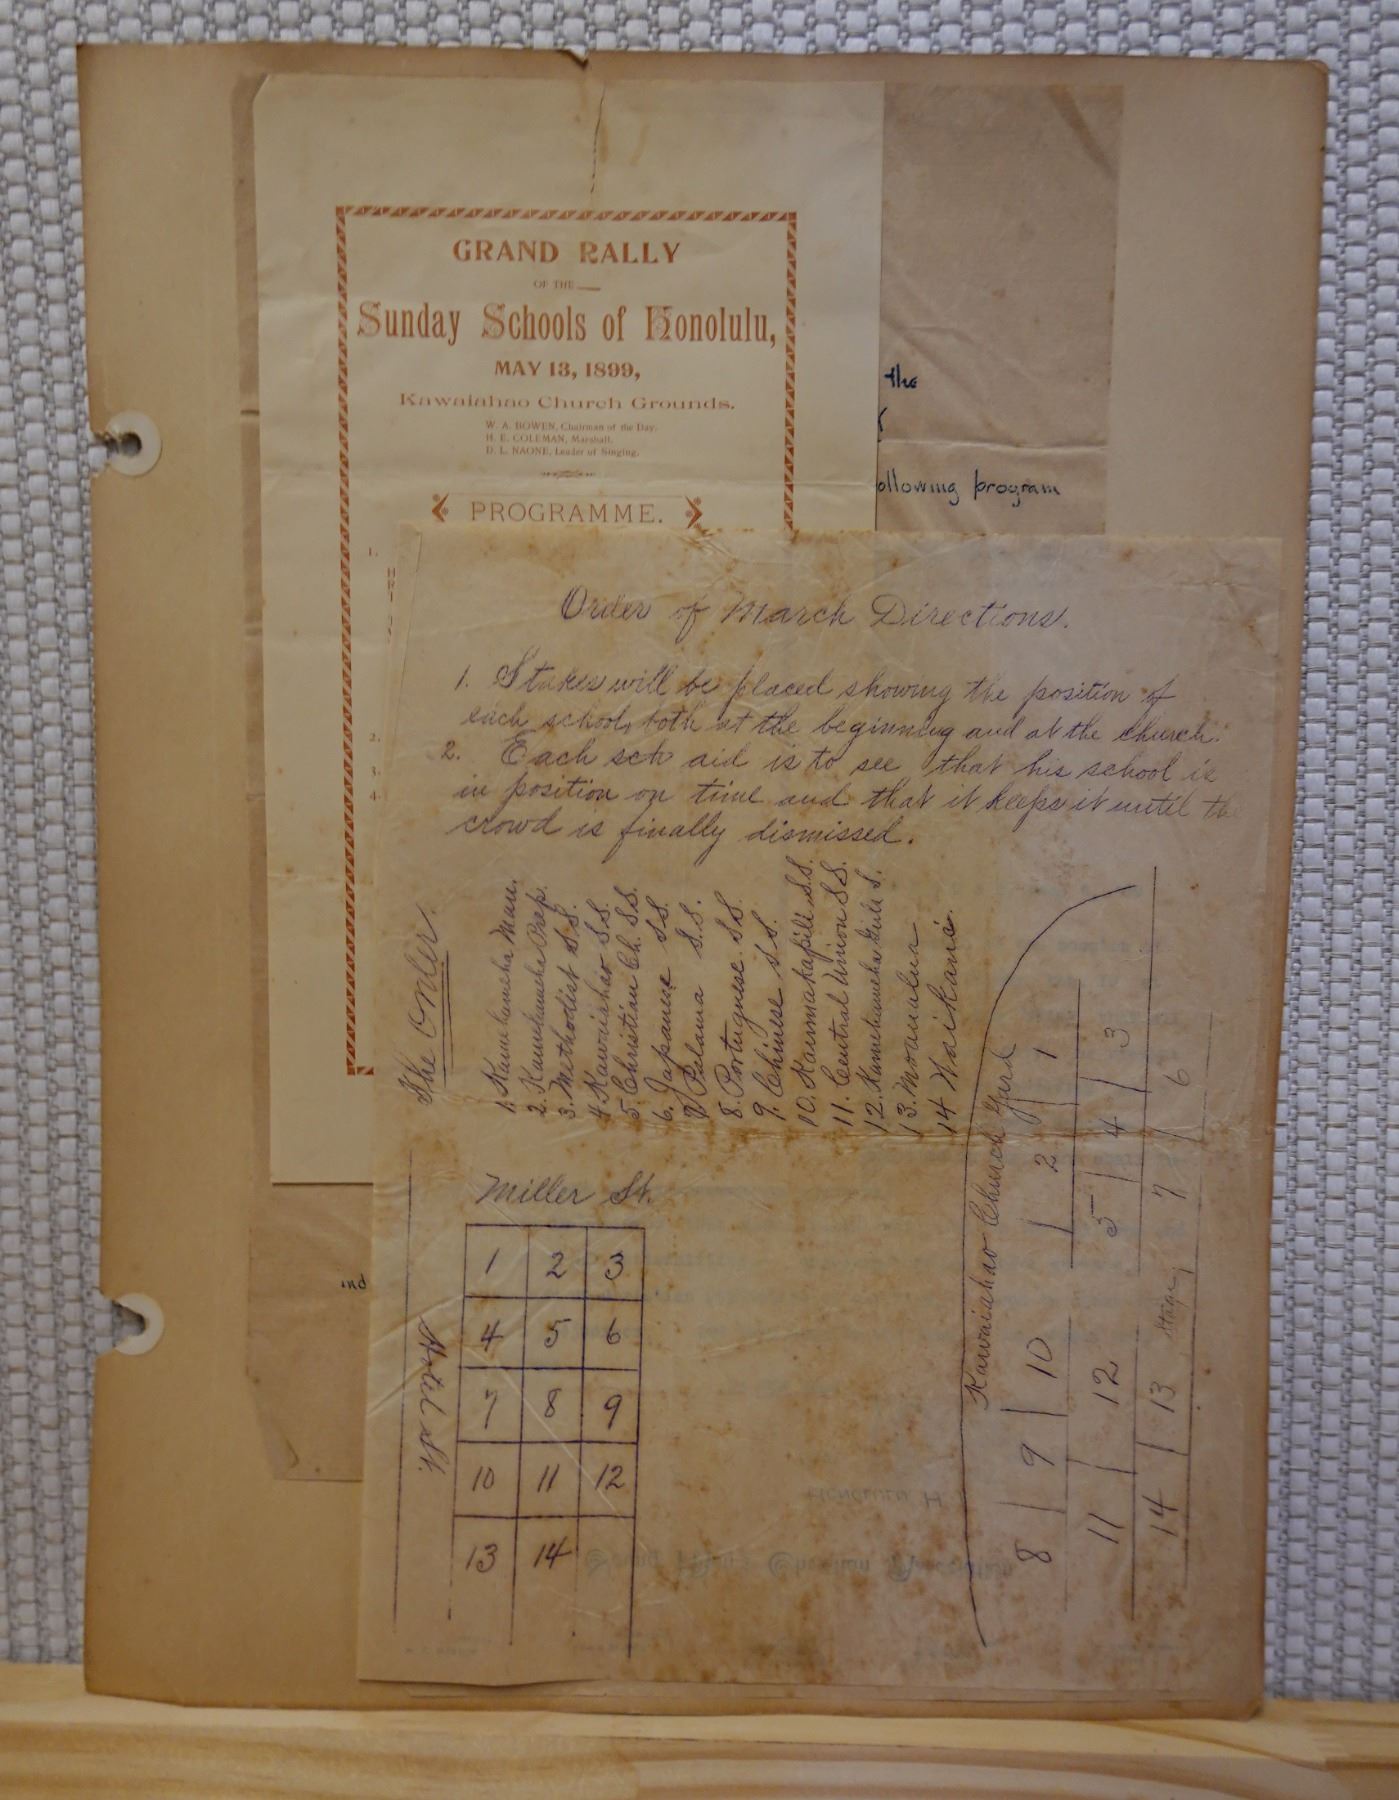 GRAND RALLY
OF THE
Sunday Schools of Honolulu,
MAY 13, 1899,
Kawaiahao Church Grounds.
W. A. BOWEN, Chairman of the Day.
H. E. COLEMAN, Marshall.
D. L. NAONE, Leader of Singing.
PROGRAMME.
1.
2.
3.
4.
the
ollowing program
ind
Order of March Directions.
1. Stakes will be placed showing the position of
each school, both at the beginning and at the church.
2. Each sch aid is to see that his school is
in position on time and that it keeps it until the
crowd is finally dismissed.
The Order.
1. Kamehameha Man.
2. Kamehameha Prep.
3. Methodist S.S.
4. Kawaiahao S.S.
5. Christian Ch. S.S.
6. Japanese S.S.
7 Palama S.S.
8. Portugnese S.S.
9. Chinese S.S.
10. Kaumakapili S.S.
11. Central Union S.S.
12. Kamehameha Girls S.
13. Moanalua
14 Waikane
Miller St.
Hotel St.
1 2 3
4 5 6
7 8 9
10 11 12
13 14
Kawaiahao Church Yard
8 9 10 2 1
11 12 5 4 3
14 13 Stage 7 6
Honolulu H